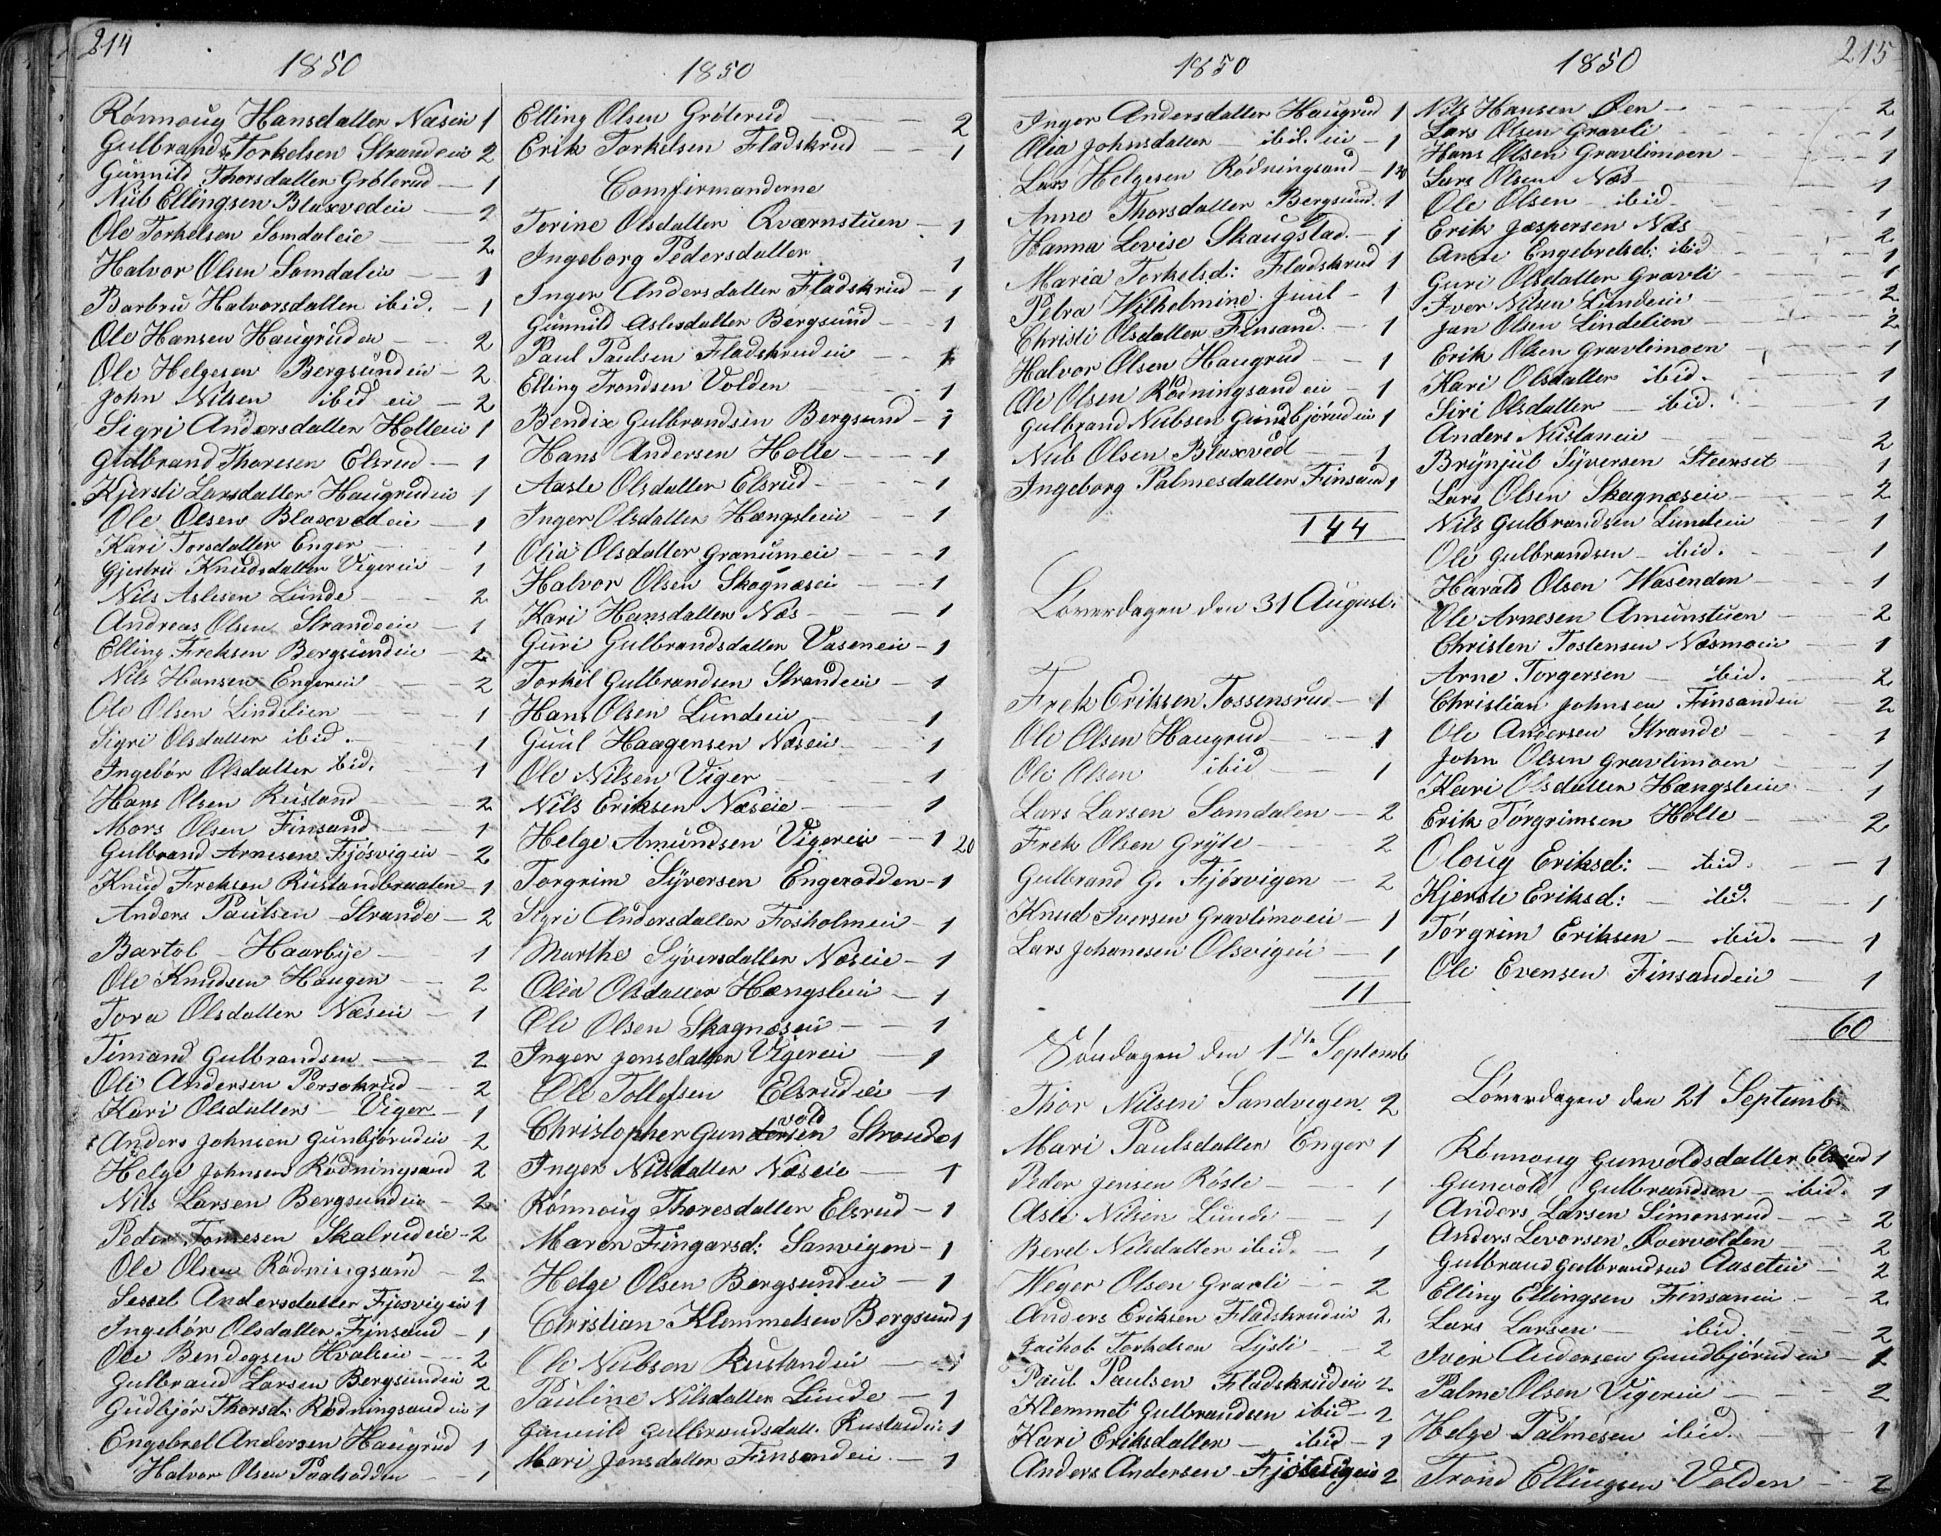 214
1850
Rønnoug Hansdatter Næseie 1
Gulbrand Torkelsen Strandeie 2
Gunnild Thorsdatter Gröterud — 1
Nub Ellingsen Blaxvedeie — 2
Ole Torkelsen Somdaleie — 2
Halvor Olsen Somdalen — 1
Barbru Halvorsdatter ibid. — 1
Ole Hansen Haugruden — 2
Ole Helgesen Bergsundeie — 2
John Nilsen ibid eie — 2
Sigri Andersdatter Holleeie 1
Gulbrand Thoresen Elsrud — 1
Kjersti Larsdatter Haugrudeie 1
Ole Olsen Blaxvedeie — 1
Kari Torsdatter Enger — 1
Gjertru Knudsdatter Vigereie — 1
Nils Aslesen Lunde — 2
Andreas Olsen Strandeeie — 1
Elling Freksen Bergsundeie — 2
Nils Hansen Engereie — 2
Ole Olsen Lindelien — 1
Sigri Olsdatter ibid. — 1
Ingebör Olsdatter ibid. — 1
Hans Olsen Rustand — 2
Mors Olsen Finsand — 1
Gulbrand Arnesen Fjösvigeie — 2
Knud Freksen Rustandbraaten — 1
Anders Paulsen Strande — 2
Bartol — Haarbye — 1
Ole Knudsen Haugen — 2
Tora Olsdatter Næseie — 1
Timand Gulbrandsen — 2
Ole Andersen Persokrud — 2
Kari Olsdatter — Viger — 1
Anders Johnsen Gunbjørudeie — 2
Helge Johnsen Rødningsand 2
Nils Larsen Bergsundeie — 2
Peder Tomesen Skalrudeie — 2
Ole Olsen Rødningsand — 2
Sessel Andersdatter Fjosvigeie 1
Ingebör Olsdatter Finsand — 1
Ole Bendegsen Hvaleeie — 2
Gulbrand Larsen Bergsundeie 2
Gudbjör Thorsd: Rødningsandeie 1
Engebret Andersen Haugrud 1
Halvor Olsen Paalsodden — 1
1850
Elling Olsen Gröterud — 2
Erik Torkelsen Fladskrud — 1
Comfirmanderne
Torine Olsdatter Qværnstuen — 1
Ingeborg Pedersdatter 1
Inger Andersdatter Fladskrud — 1
Gunnild Aslesdatter Bergsund — 1
Paul Paulsen Fladskrudeie — 1
Elling Trondsen Volden — 1
Bendix Gulbrandsen Bergsund — 1
Hans Andersen Holle — 1
Aasle Olsdatter Elsrud — 1
Inger Olsdatter Hængsleeie 1
Olia Olsdatter Granumeie — 1
Halvor Olsen Skagnæseie — 1
Kari Hansdatter Næs — 1
Guri Gulbrandsdatter Vaseneie — 1
Torkil Gulbrandsen Strandeeie — 1
Hans Olsen Lundeeie — 1
Guul Haagensen Næseie — 1
Ole Nilsen Viger — 1
Nils Eriksen Næseie — 1
Helge Amundsen Vigereie — 1 20
Torgrim Syversen Engerodden — 1
Sigri Andersdatter Fosholmeie — 1
Marthe Syversdatter Næseie — 1
Olia Olsdatter Hængsleeie — 1
Ole Olsen Skagnæseie — 1
Inger Jensdatter Vigereie — 1
Ole Tollefsen Elsrudeie — 1
Christopher Gundersen vold Strande 1
Inger Nilsdatter Næseie — 1
Rønnoug Thoresdatter Elsrud — 1
Maren Fingarsd: Sanvigen — 1
Helge Olsen Bergsundeie — 1
Christian Klemmetsen Bergsund 1
Ole Nubsen Rustandeie — 1
Pauline Nilsdatter Lunde — 1
Gunnild Gulbrandsdatt. Rustandeie 1
Mari Jensdatter Finsandeie. — 1
1850
Inger Andersdatter Haugrud 1
Olia Johnsdatter — ibid. eie — 1
Lars Helgesen Rödningsand — 1 20
Anne Thorsdatter Bergsund. 1
Hanna Lovise Skaugstad. — 1
Maria Torkelsd: Fladskrud 1
Petra Wilhelmine Juul — 1
Christi Olsdatter Finsand. — 1
Halvor Olsen Haugrud — 1
Ole Olsen Rødningsandeie — 1
Gulbrand Nubsen Gundbjørudeie 1
Nub Olsen Blaxved — 1
Ingeborg Palmesdatter Finsand 1
144
Löverdagen den 31 August.
Frek Eriksen Tossensrud — 1
Ole Olsen Haugrud — 1
Ole Olsen ibid — 1
Lars Larsen Somdalen — 2
Frek Olsen Gryte — 2
Gulbrand G. Fjösvigen — 2
Knud Iversen Gravlimoeie — 1
Lars Johanesen Olsvigeie — 1
11
Søndagen den 1ste Septemb
Thor Nilsen Sandvigen. 2
Mari Paulsdatter Enger 1
Peder Jensen Röste — 1
Asle Nilsen Lunde — 1
Beret Nilsdatter ibid. — 1
Weger Olsen Gravli — 2
Anders Eriksen Fladskrudeie 2
Jachob Torkelsen Lysli — 2
Paul Paulsen Fladskrudeie 2
Klemmet Gulbrandsen ibid — 2
Kari Eriksdatter — ibid — 1
Anders Andersen Fjösvigeie 2
1850
215
Nils Hansen Øen — 2
Lars Olsen Gravli — 1
Hans Olsen Gravlimoen — 1
Lars Olsen Næs — 1
Ole Olsen ibid. — 1
Erik Jæspersen Næs — 2
Anne Engebretsd: ibid — 1
Guri Olsdatter Gravli — 1
Iver Nilsen Lundeeie — 2
Jan Olsen Lindelien — 2
Erik Olsen Gravlimoen — 1
Kari Olsdatter ibid. — 1
Siri Olsdatter — ibid. — 1
Anders Nilstaneie — 2
Brynjul Syversen Steenset — 1
Lars Olsen Skagnæseie — 2
Nils Gulbrandsen Lundeeie — 1
Ole Gulbrandsen — ibid. — 1
Harald Olsen Wasenden — 1
Ole Arnesen Amunstuen — 2
Christen Tostensen Næsmoeie — 1
Arne Torgersen — ibid. — 2
Christian Johnsen Finsandeie — 2
Ole Andersen Strande — 1
John Olsen Gravlimoen — 1
Kari Olsdatter Hængsleeie — 1
Erik Torgrimsen Holle — 2
Oloug Eriksd: — ibid. — 1
Kjersti Eriksd: — ibid. — 1
Torgrim Eriksen — ibid. — 1
Ole Evensen Finsandeie — 1
60
Löverdagen den 21 Septemb.
Rønnoug Gunvoldsdatter Elsrud 1
Gunvold Gulbrandsen — ibid. 1
Anders Larsen Simensrud — 2
Anders Levorsen Qvervolden — 2
Gulbrand Gulbrandsen Aaseteie — 2
Elling Ellingsen Finsaneie — 2
Lars Larsen — ibid. — 2
Iver Andersen Gundbjørudeie — 1
Palme Olsen Vigereie — 2
Helge Palmesen ibid. — 1
Trond Ellingsen Volden — 2